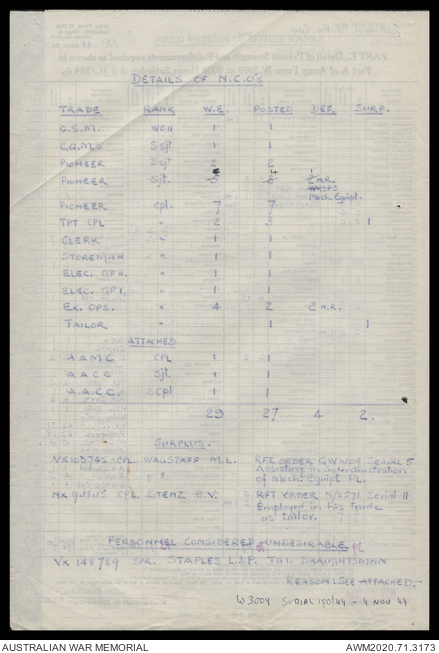 DETAILS OF N.C.O's
TRADE RANK W.E. POSTED DEF. SURP.
C.S.M. WOII 1 1
C.Q.M.S S/Sjt 1 1
PIONEER S/Sjt 2 2
PIONEER Sjt. 4 2 N.R.
WKSPS
Mech. Equipt.
PIONEER Cpl. 7 7
TPT CPL " 2 3 1
CLERK " 1 1
STOREMAN " 1 1
ELEC. GP II. " 1 1
ELEC. GP I. " 1 1
EX. OPS. " 4 2 2 N.R.
TAILOR " 1 1
ATTACHED
A A M C CPL 1 1
A A C C Sjt. 1 1
A.A.C.C. Cpl 1 1
29 27 4 2.
SURPLUS.
CPL WAGSTAFF M.L. RFT ORDER SERIAL 5
Assisting in administration
of Mech. Equipt PL.
CPL STENZ B.V. RFT ORDER Serial 11
Employed in his trade
as tailor.
PERSONNEL CONSIDERED UNDESIRABLE
VX 148789 SPR. STAPLES L.J.P. TGI. DRAUGHTSMAN
REASON: SEE ATTACHED.
W 3009 SERIAL 130/44 - 4 NOV 44
AUSTRALIAN WAR MEMORIAL AWM2020.71.3173